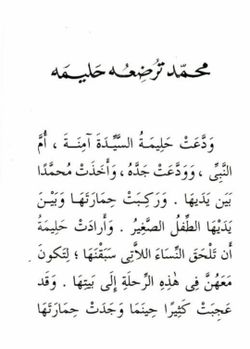 محمّد تُرضِعُه حَليمَه
وَدَّعَتْ حَلِيمَةُ السَّيِّدَةَ آمِنَةَ ، أُمَّ
النَّبِىِّ ، وَوَدَّعَتْ جَدَّهُ ، وَأَخَذَتْ مُحَمَّدًا
بَيْنَ يَدَيهَا . وَرَكِبَتْ حِمارَتَهَا وَبَيْنَ
يَدَيْهَا الطِّفْلُ الصَّغِيرُ . وَأَرادَتْ حَلِيمَةُ
أَن تَلْحَقَ النِّسَاءَ اللاَّتِى سَبَقْنَهَا ؛ لِتَكونَ
مَعَهُنَّ فِى هٰذِهِ الرِّحلَةِ إِلَى بَيتِهَا . وَقَد
عَجِبَتْ كَثِيرًا حِينَمَا وَجَدَتْ حِمارَتَهَا